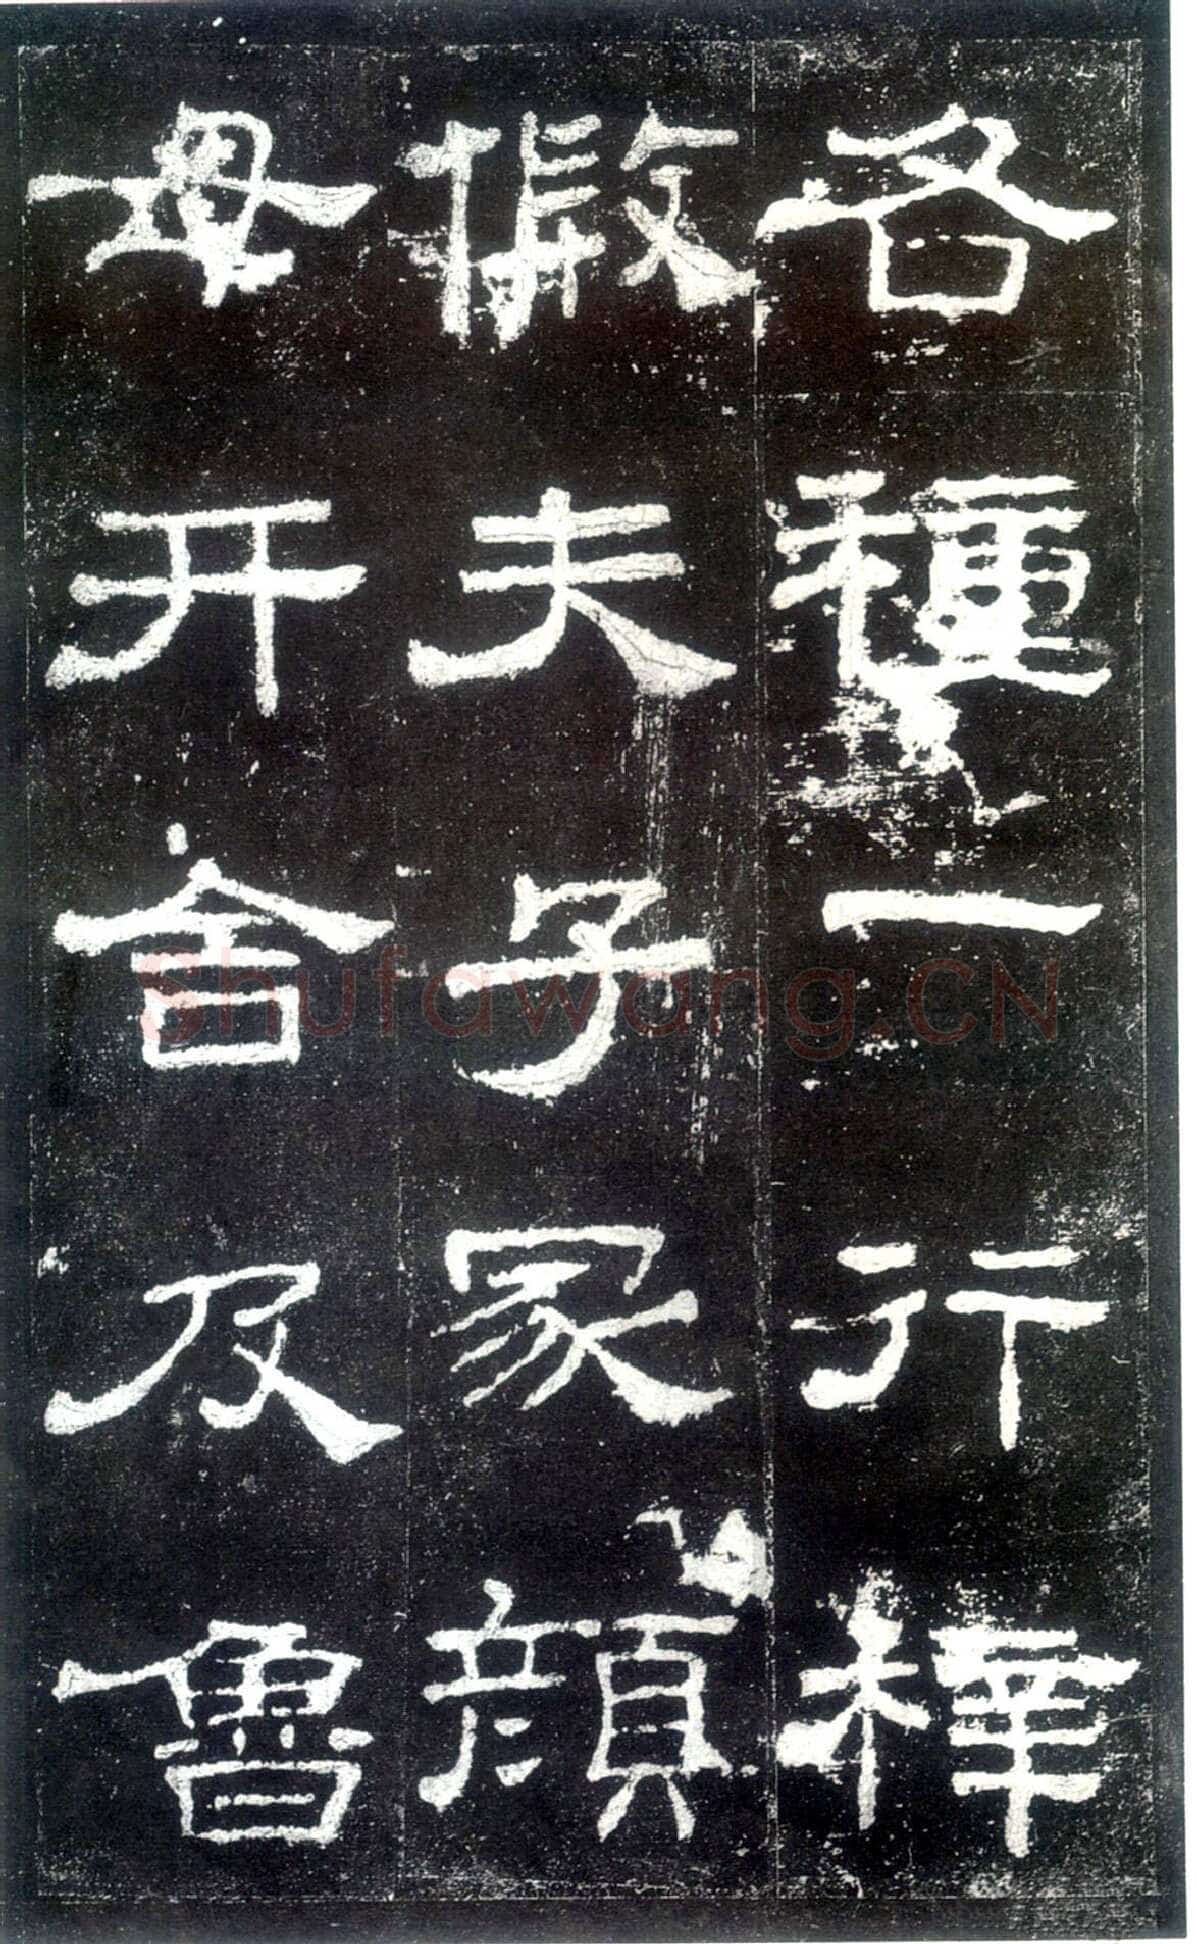 各種一行梓
假夫子冢顏
母开舍及魯
Shufawang.CN